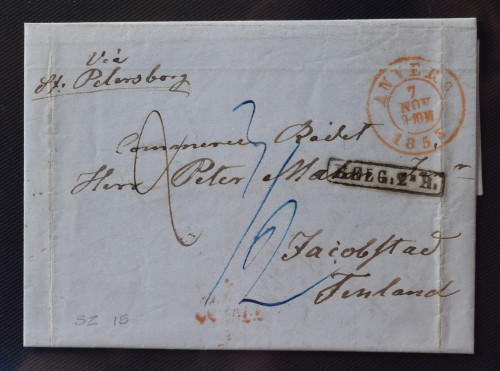 Via
St. Petersborg
ANVERS
7
NOV
1855
Commerce Rådet
Herr Peter Malm Jun r
BELG. 2e R.
Jacobstad
Finland
SZ 18